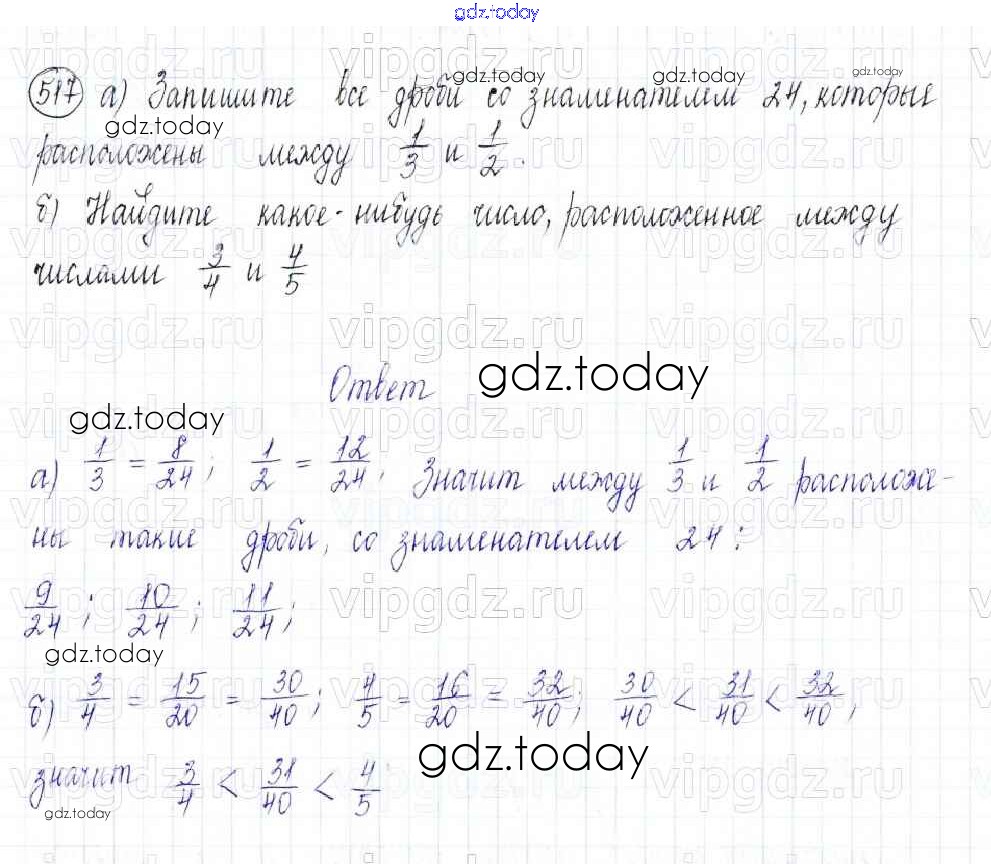 gdz.today
517 а) Запишите все дроби со знаменателем 24, которые
gdz.today gdz.today gdz.today
gdz.today
расположены между 1/3 и 1/2.
б) Найдите какое-нибудь число, расположенное между
числами 3/4 и 4/5
vipgdz.ru vipgdz.ru vipgdz.ru
Ответ gdz.today
gdz.today
а) 1/3 = 8/24; 1/2 = 12/24; Значит между 1/3 и 1/2 расположе-
ны такие дроби, со знаменателем 24:
9/24; 10/24; 11/24;
gdz.today
б) 3/4 = 15/20 = 30/40; 4/5 = 16/20 = 32/40; 30/40 < 31/40 < 32/40;
gdz.today
значит 3/4 < 31/40 < 4/5
gdz.today